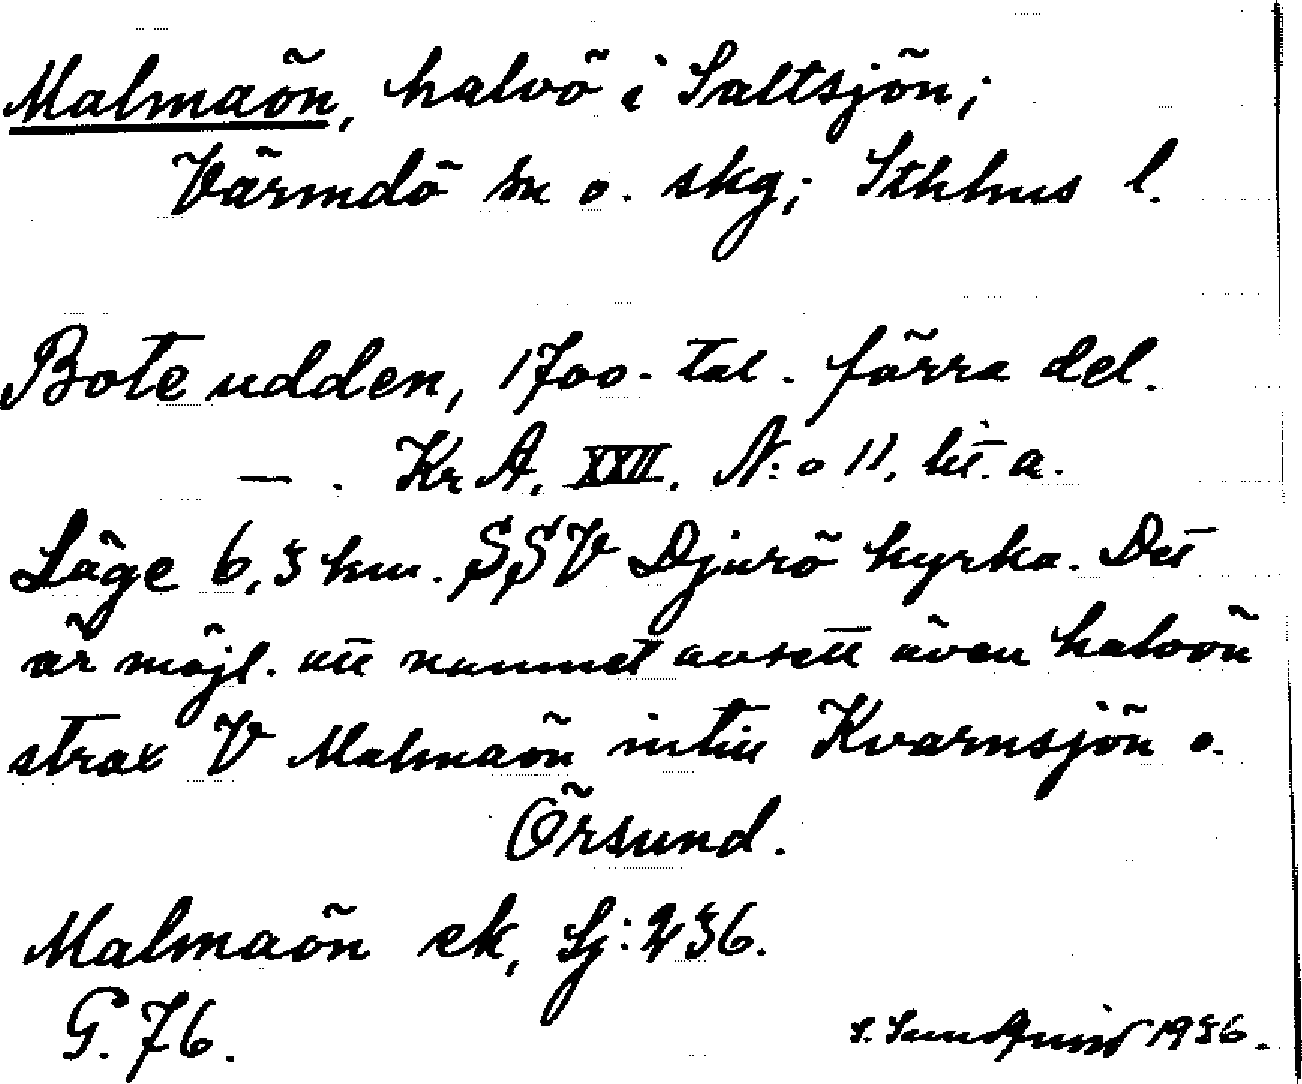 Malmaön, halvö i Saltsjön;
Värmdö sn o. skg; Sthlms l.
Boteudden, 1700-tal. förra del.
— . Kr A. XXII. N:o 11. lit. a.
Läge 6,5 km. SSV Djurö kyrka. Det
är möjl. att namnet avsett även halvön
strax V Malmaön intill Kvarnsjön o.
Örsund.
Malmaön ek, Sj: 236.
G. 76.
S. Sundqvist 1936.